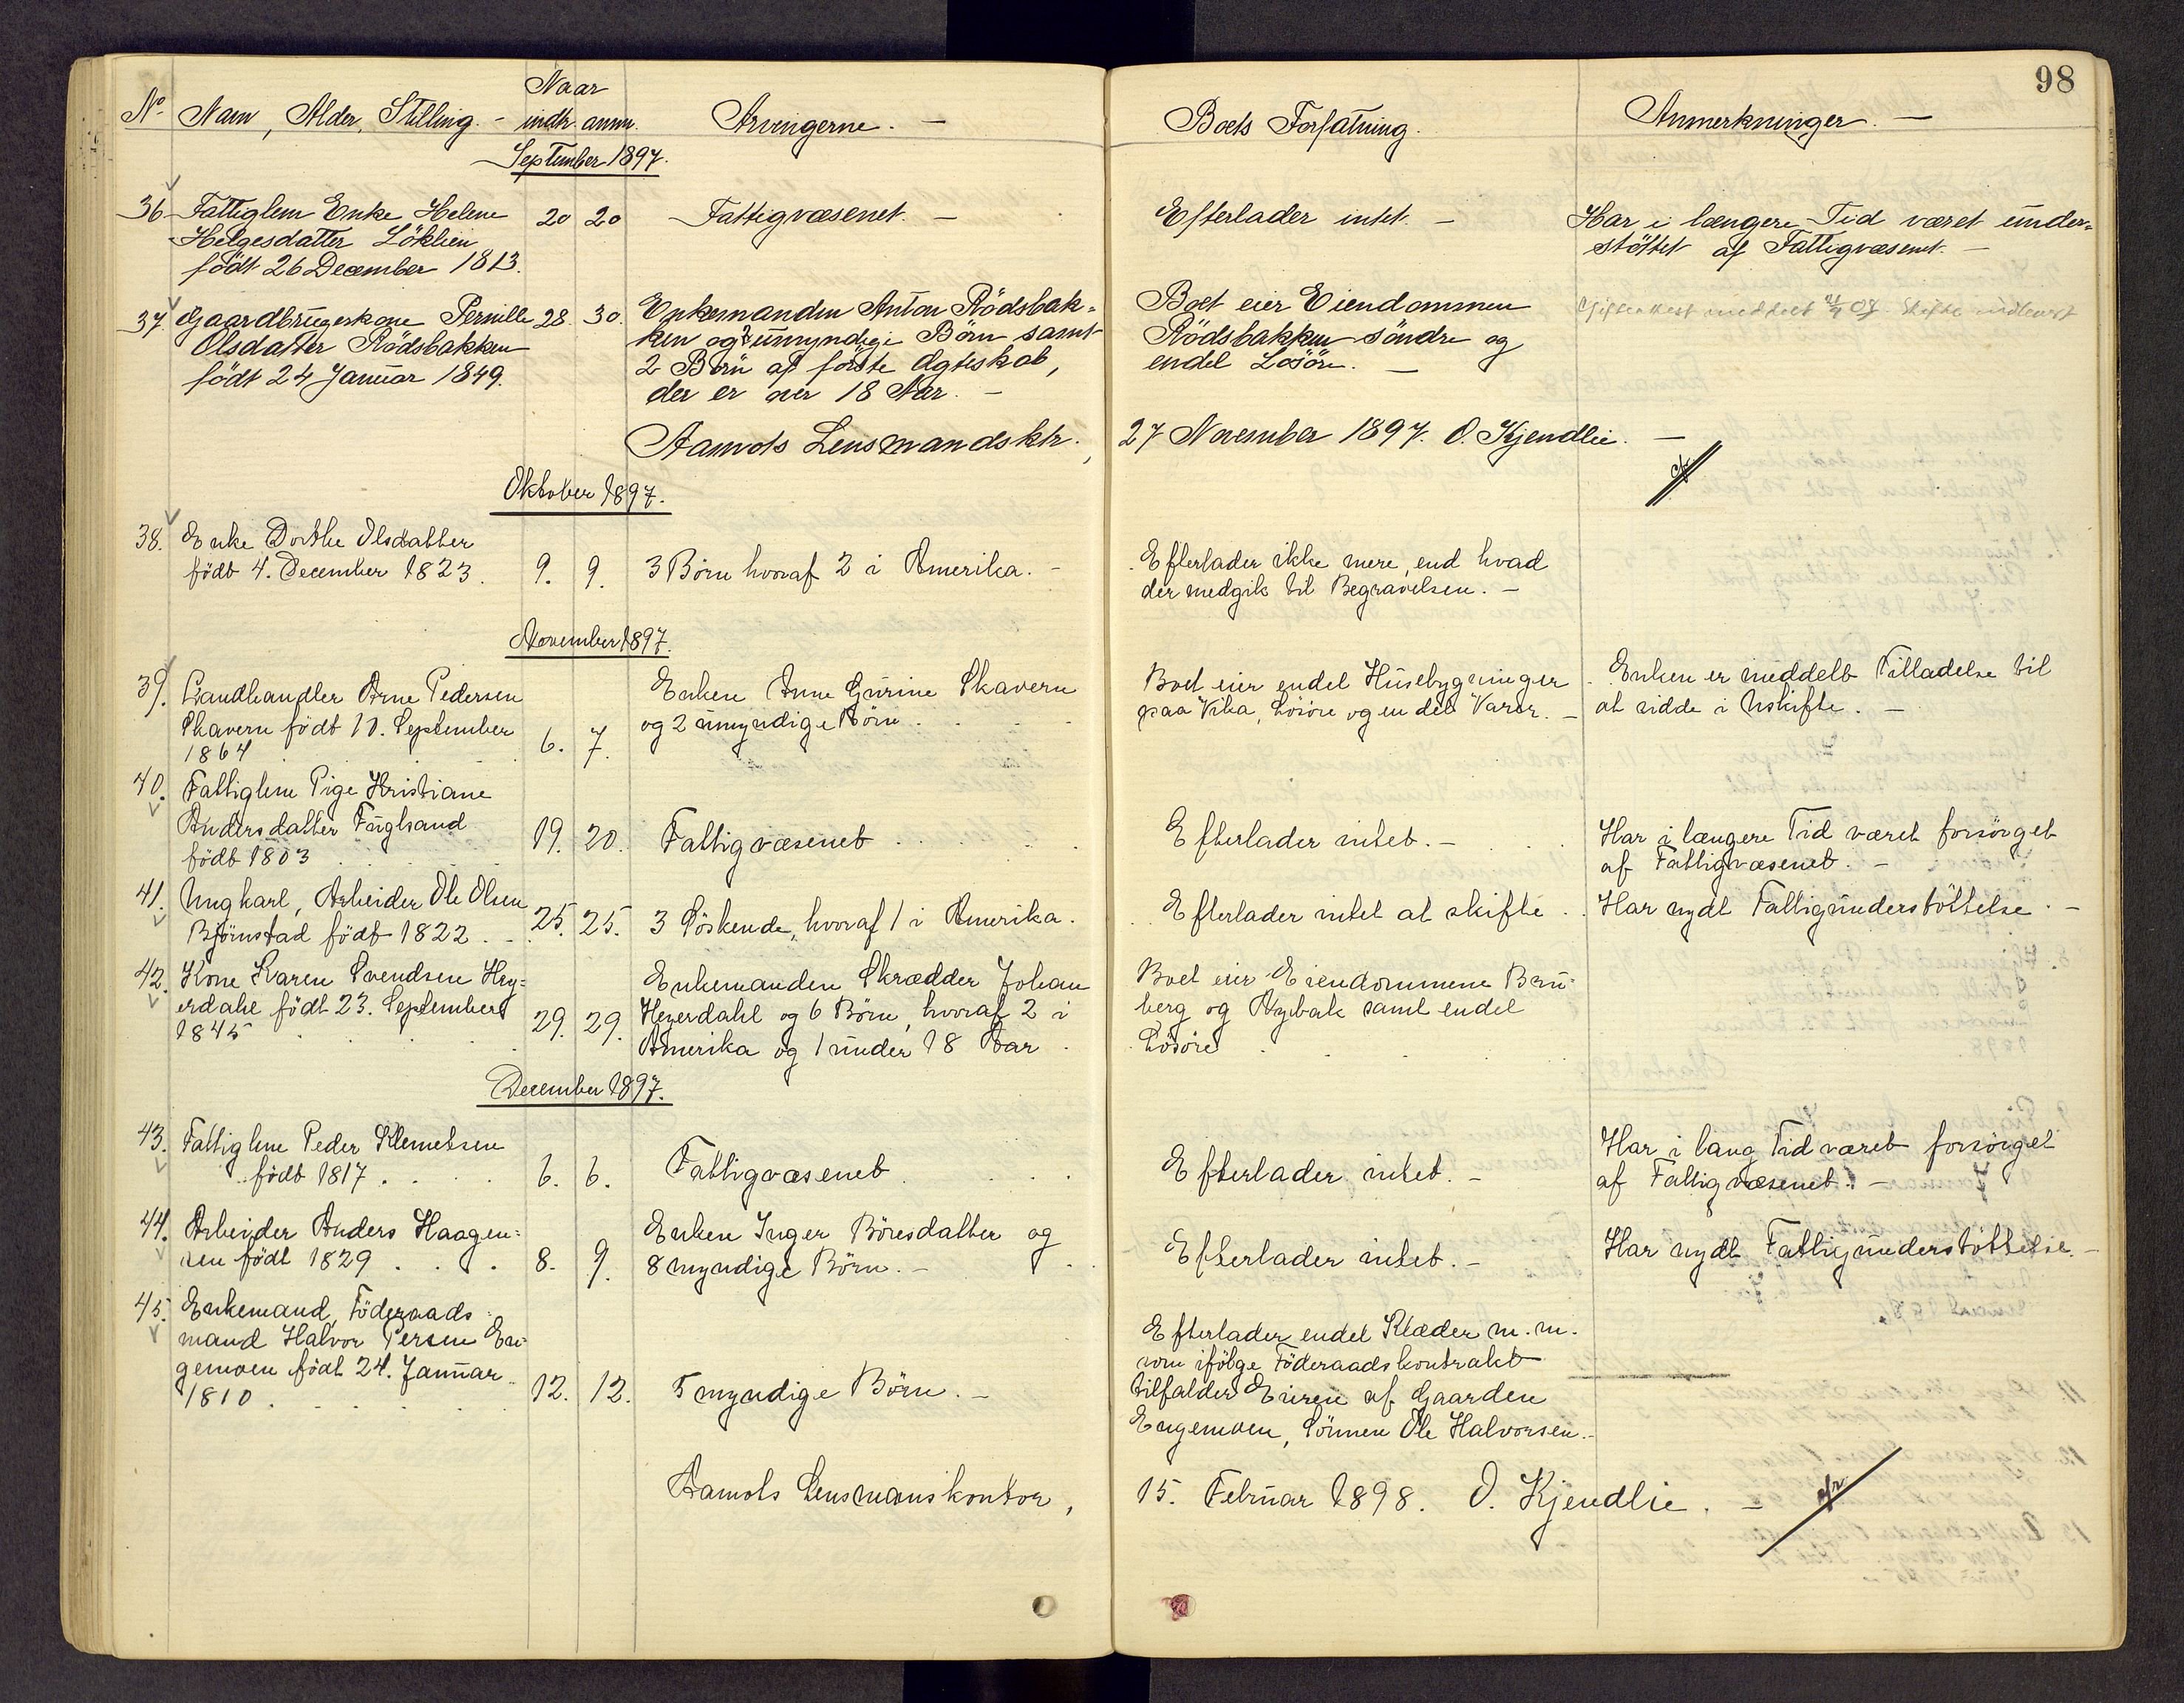 98
Naar
No Navn, Alder, Stilling. - indtr. anm. Arvingerne. - Boets Forfatning. Anmerkninger. -
September 1897.
36. Fattiglem Enke Helene 20 20 Fattigvæsenet. - Efterlader intet. - Har i længere Tid været under-
Helgesdatter Löklien støttet af Fattigvæsenet. -
födt 26 December 1813.
37. Gaardbrugerkone Pernille 28. 30. Enkemanden Anton Rödsbak- Boet eier Eiendommen
Olsdatter Rödsbakken ken og umyndige Börn samt Rödsbakken söndre og
födt 24 Januar 1849. 2 Börn af förste Ægteskab, endel Lösöre. -
der er over 18 Aar. -
Aamots Lensmandsktr., 27 November 1897. O. Kjendlie. -
Oktober 1897.
38. Enke Dorthe Olsdatter
födt 4. December 1823. 9. 9. 3 Börn hvoraf 2 i Amerika. - Efterlader ikke mere, end hvad
der medgik til Begravelsen. -
November 1897.
39. Landhandler Arne Pedersen Enken Anne Gurine Skavern Boet eier endel Husebygninger Enken er meddelt Tilladelse til
Skavern födt 10. September og 2 umyndige Börn. paa Vika, Lösöre og en del Varer. - at sidde i Uskifte. -
1864 6. 7.
40. Fattiglem Pige Kristiane
Andersdatter Fuglsand 19. 20. Fattigvæsenet Efterlader intet. - Har i længere Tid været forsörget
födt 1803 af Fattigvæsenet. -
41. Ungkarl, Arbeider Ole Olsen 25. 25. 3 Söskende, hvoraf 1 i Amerika. Efterlader intet at skifte. Har nydt Fattigunderstöttelse. -
Björnstad födt 1822. -
42. Kone Karen Svendsen Hey- Enkemanden Skrædder Johan Boet eier Eiendommene Bru-
erdahl födt 23. September 29. 29. Heyerdahl og 6 Börn, hvoraf 2 i berg og Nybak samt endel
1845 Amerika og 1 under 18 Aar. Lösöre
December 1897.
43. Fattiglem Peder Klemetsen Har i lang Tid været forsörget
födt 1817. 6. 6. Fattigvæsenet Efterlader intet. - af Fattigvæsenet. -
44. Arbeider Anders Haagen- Enken Inger Böresdatter og Har nydt Fattigunderstöttelse. -
sen födt 1829 8. 9. 8 myndige Börn. - Efterlader intet. -
45. Enkemand, Föderaads- Efterlader endel Klæder m. m.
mand Halvor Persen En- som ifölge Föderaadskontrakt
gemoen födt 24. Januar tilfalder Eieren af Gaarden
1810. 12. 12. 5 myndige Börn. - Engemoen, Sönnen Ole Halvorsen. -
Aamots Lensmanskontor, 15. Februar 1898. O. Kjendlie. -